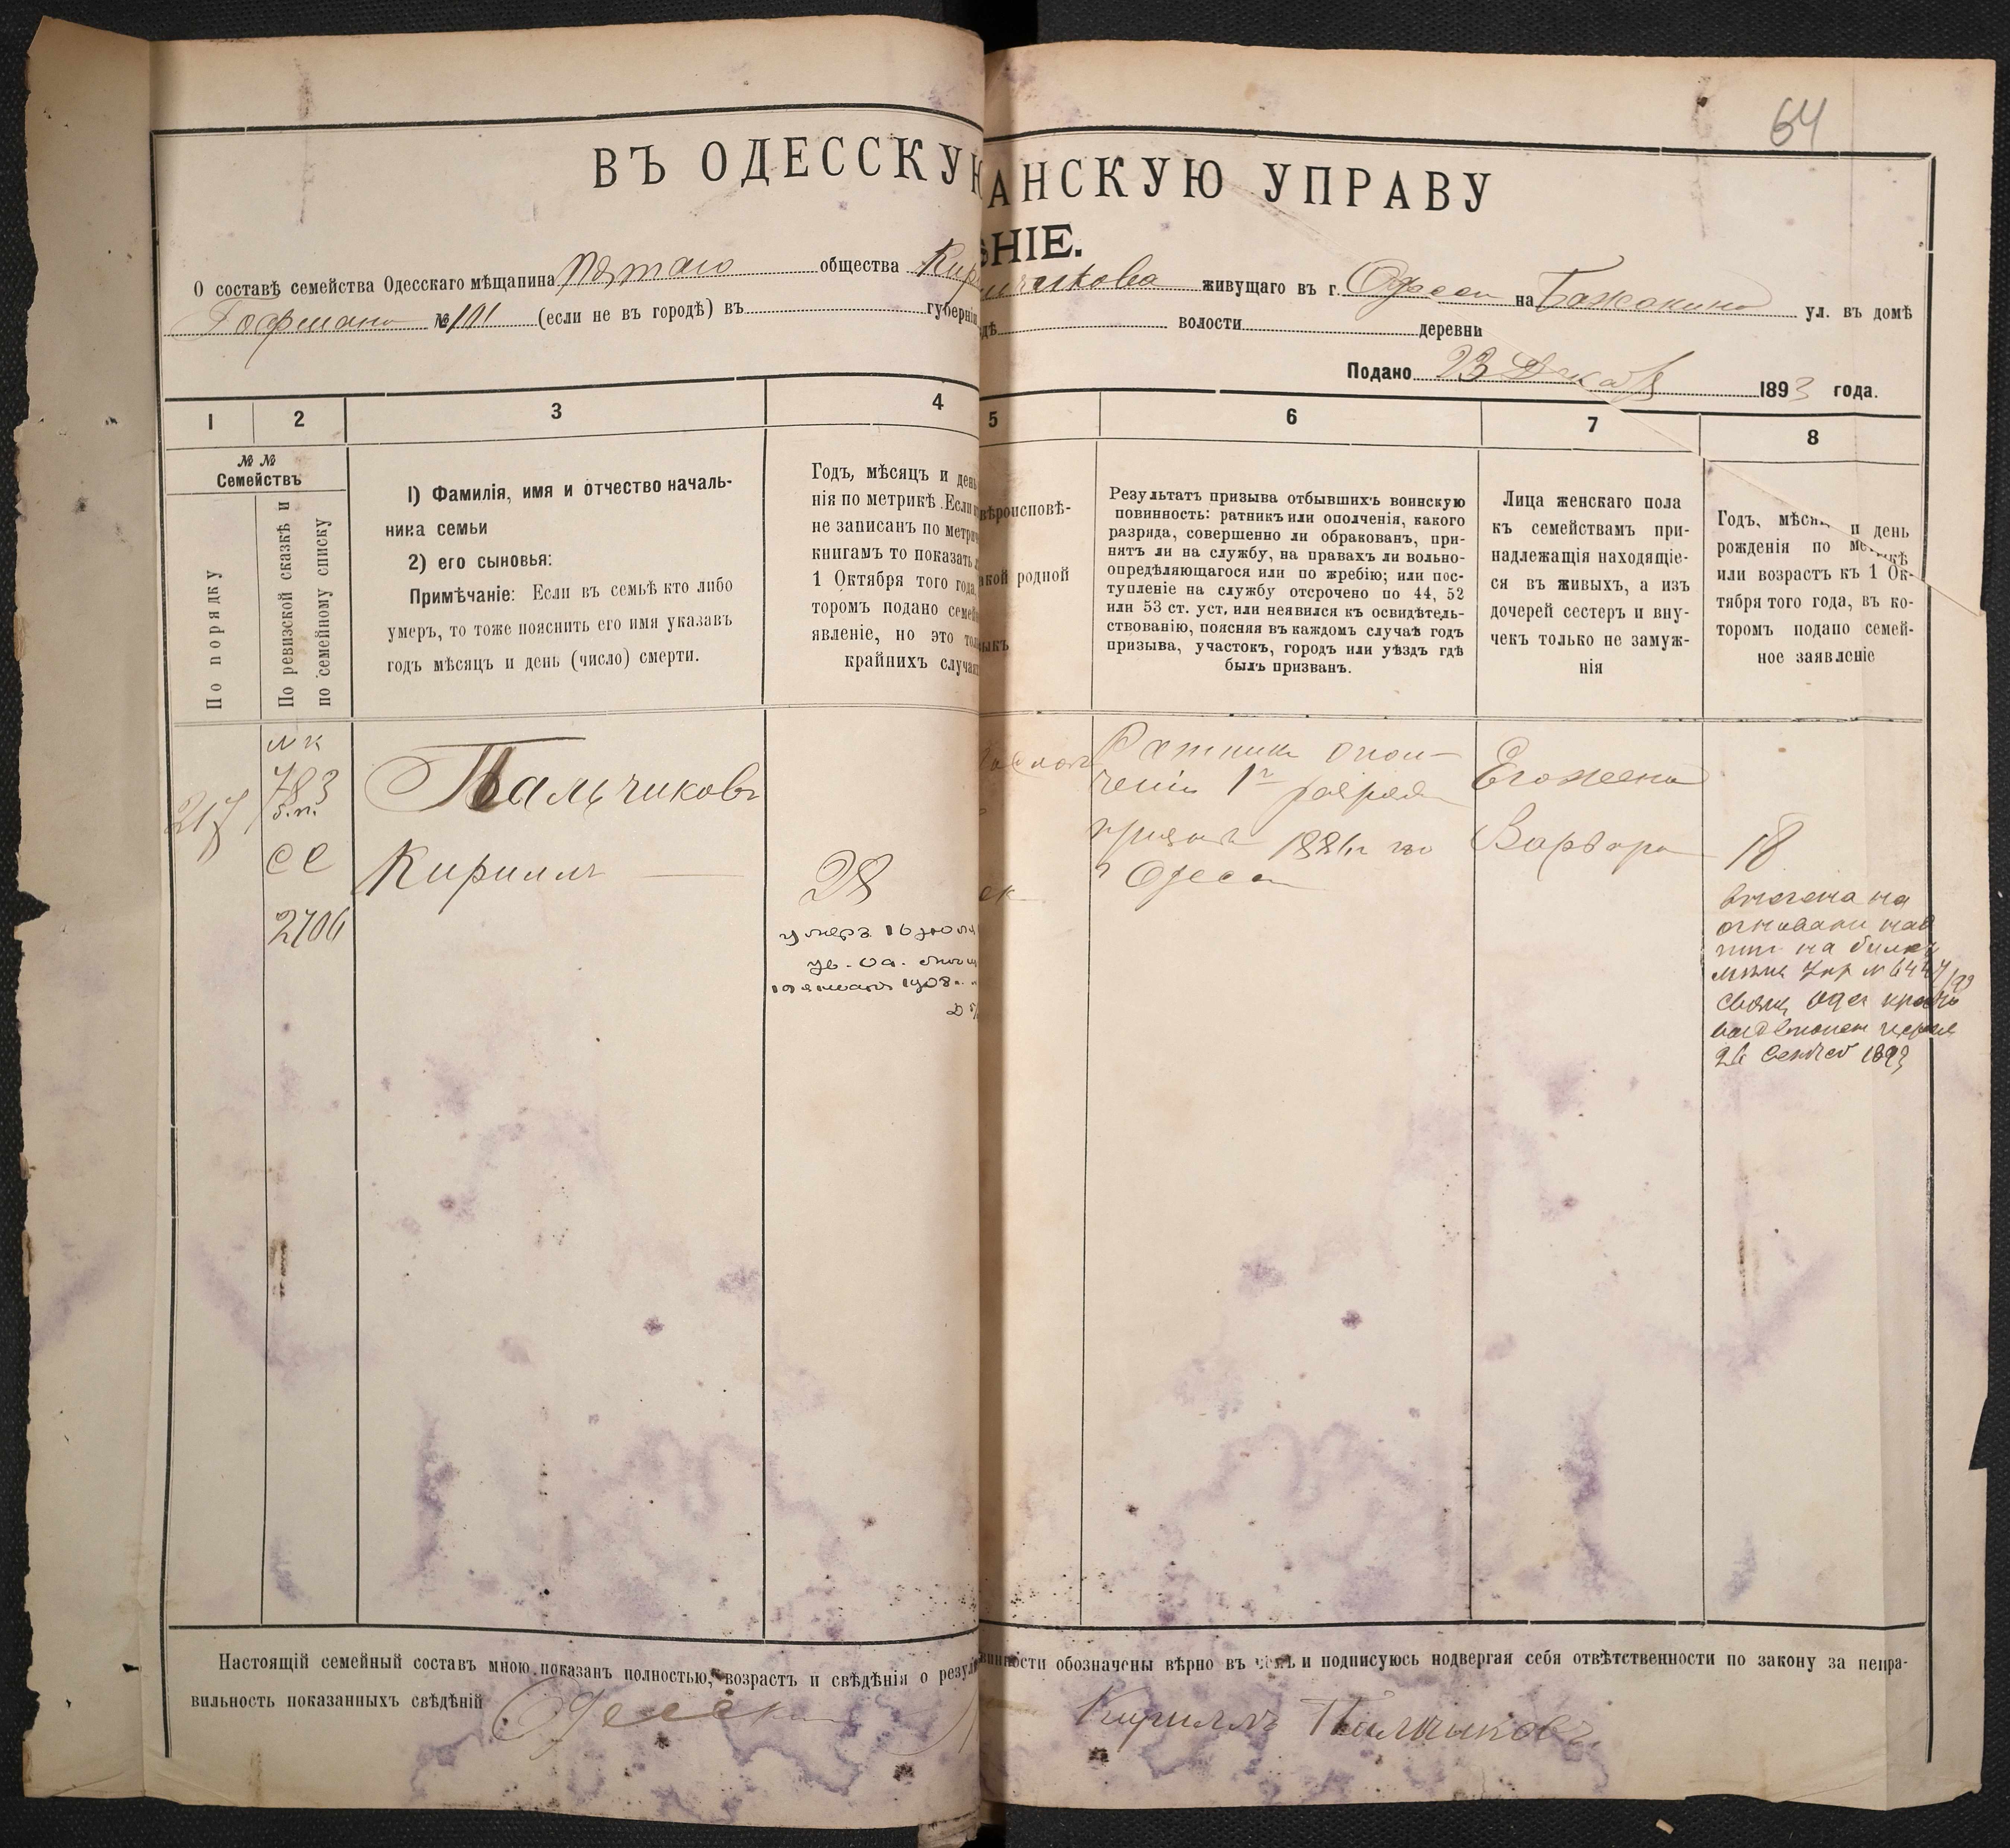 64
ВЪ ОДЕССКУЮ
АНСКУЮ УПРАВУ
ѢНІЕ.
О составѣ семейства Одесскаго мѣщанина пятаго общества Кир
чикова живущаго въ г. Одессѣ на Бажакина ул. въ домѣ
Гофмана № 101 (если не въ городѣ) въ губерніи
здѣ волости деревни
Подано 23 Декабря 1893 года.
1 2 3 4 5 6 7 8
№ №
Семействъ
По порядку
По ревизской сказкѣ и
по семейному списку
1) Фамилія, имя и отчество началь-
ника семьи
2) его сыновья:
Примѣчаніе: Если въ семьѣ кто либо
умеръ, то тоже пояснить его имя указавъ
годъ мѣсяцъ и день (число) смерти.
Годъ, мѣсяцъ и день
нія по метрикѣ. Если
не записанъ по метри
книгамъ то показать
1 Октября того года,
торомъ подано семей
явленіе, но это толь
крайнихъ случаях
вѣроисповѣ-
акой родной
зыкъ
Результатъ призыва отбывшихъ воинскую
повинность: ратникъ или ополченія, какого
разряда, совершенно ли обракованъ, при-
нятъ ли на службу, на правахъ ли вольно-
опредѣляющагося или по жребію; или пос-
тупленіе на службу отсрочено по 44, 52
или 53 ст. уст, или неявился къ освидѣтель-
ствованію, поясняя въ каждомъ случаѣ годъ
призыва, участокъ, городъ или уѣздъ гдѣ
былъ призванъ.
Лица женскаго пола
къ семействамъ при-
надлежащія находящіе-
ся въ живыхъ, а изъ
дочерей сестеръ и вну-
чекъ только не замуж-
нія
Годъ, мѣсяц и день
рожденія по метрикѣ
или возрастъ къ 1 Ок-
тября того года, въ ко-
торомъ подано семей-
ное заявленіе
217
783
СС
2706
Пальчиковъ
Кириллъ
28
умеръ 16 июля
Ратникъ опол-
ченія 1го разряда
призыва 1886 го
Одесса
Его жена
Варвара
18
26 Сентяб 1893
Настоящій семейный составъ мною показанъ полностью, возрастъ и свѣдѣнія о резул
инности обозначены вѣрно въ чемъ и подписуюсь подвергая себя отвѣтственности по закону за непра-
вильность показанныхъ свѣдѣній
Одесск
Кириллъ Пальчиковъ